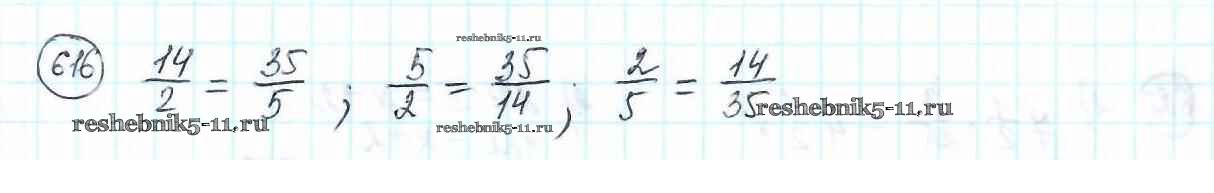 reshebnik5-11.ru
616 14/2 = 35/5 ; 5/2 = 35/14 ; 2/5 = 14/35
reshebnik5-11.ru reshebnik5-11.ru reshebnik5-11.ru